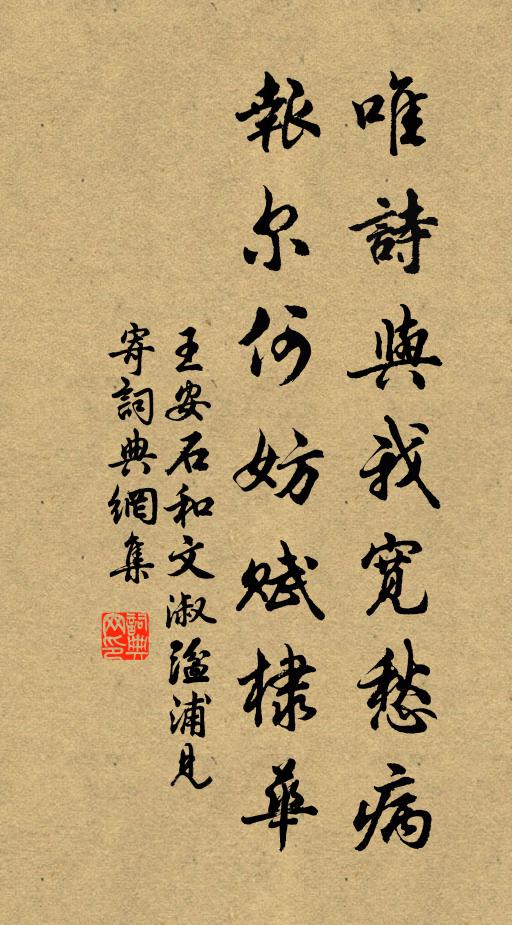 唯詩與我寬愁病
報尔何妨賦棣華
王安石和文淑湓浦見
寄詞典網集
詞典
网印